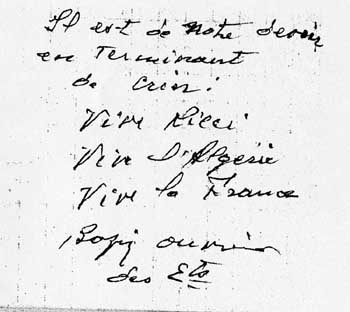 Il est de notre devoir
en terminant
de crier :
Vive Ricci
Vive l'Algérie
Vive la France
ouvrier
des Ets